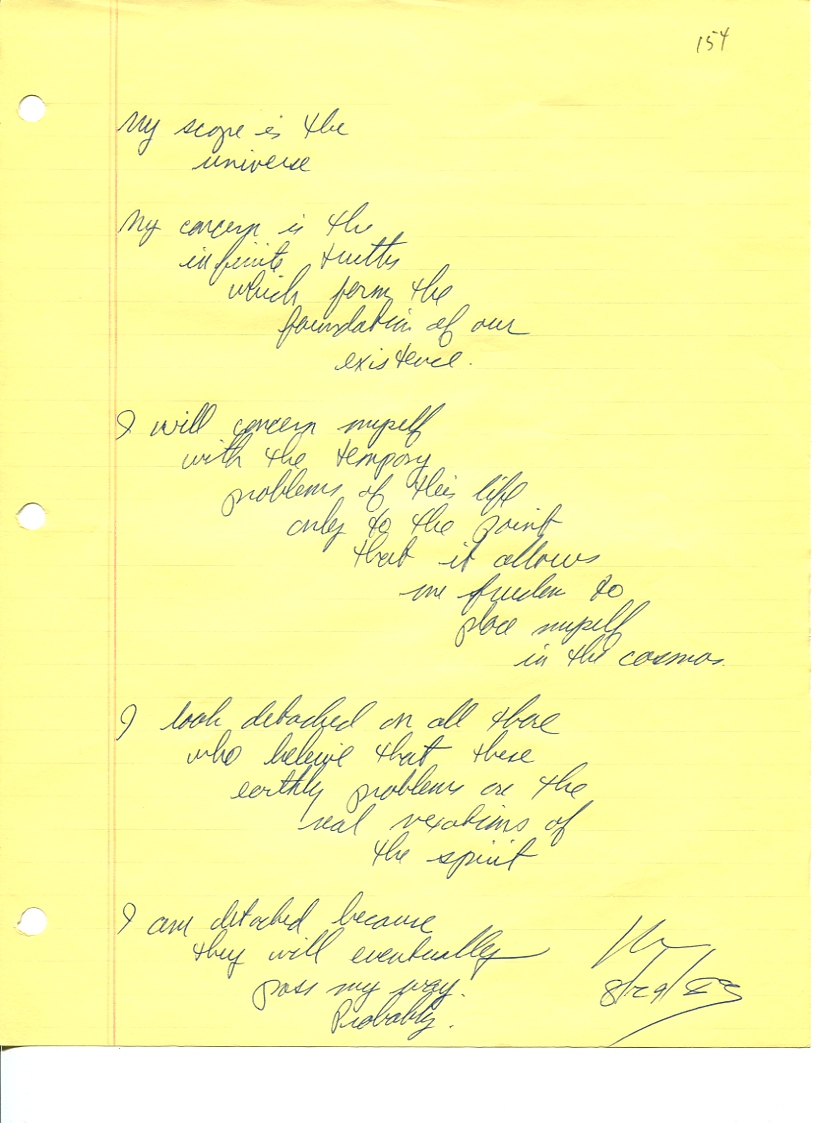 154
My scope is the
universe
My concern is the
infinite truths
which form the
foundation of our
existence.
I will concern myself
with the tempory
problems of this life
only to the point
that it allows
me freedom to
place myself
in the cosmos.
I look detached on all those
who beleive that these
earthly problems are the
real vexations of
the spirit
I am detached because
they will eventually
pass my way.
Probably.
8/29/83